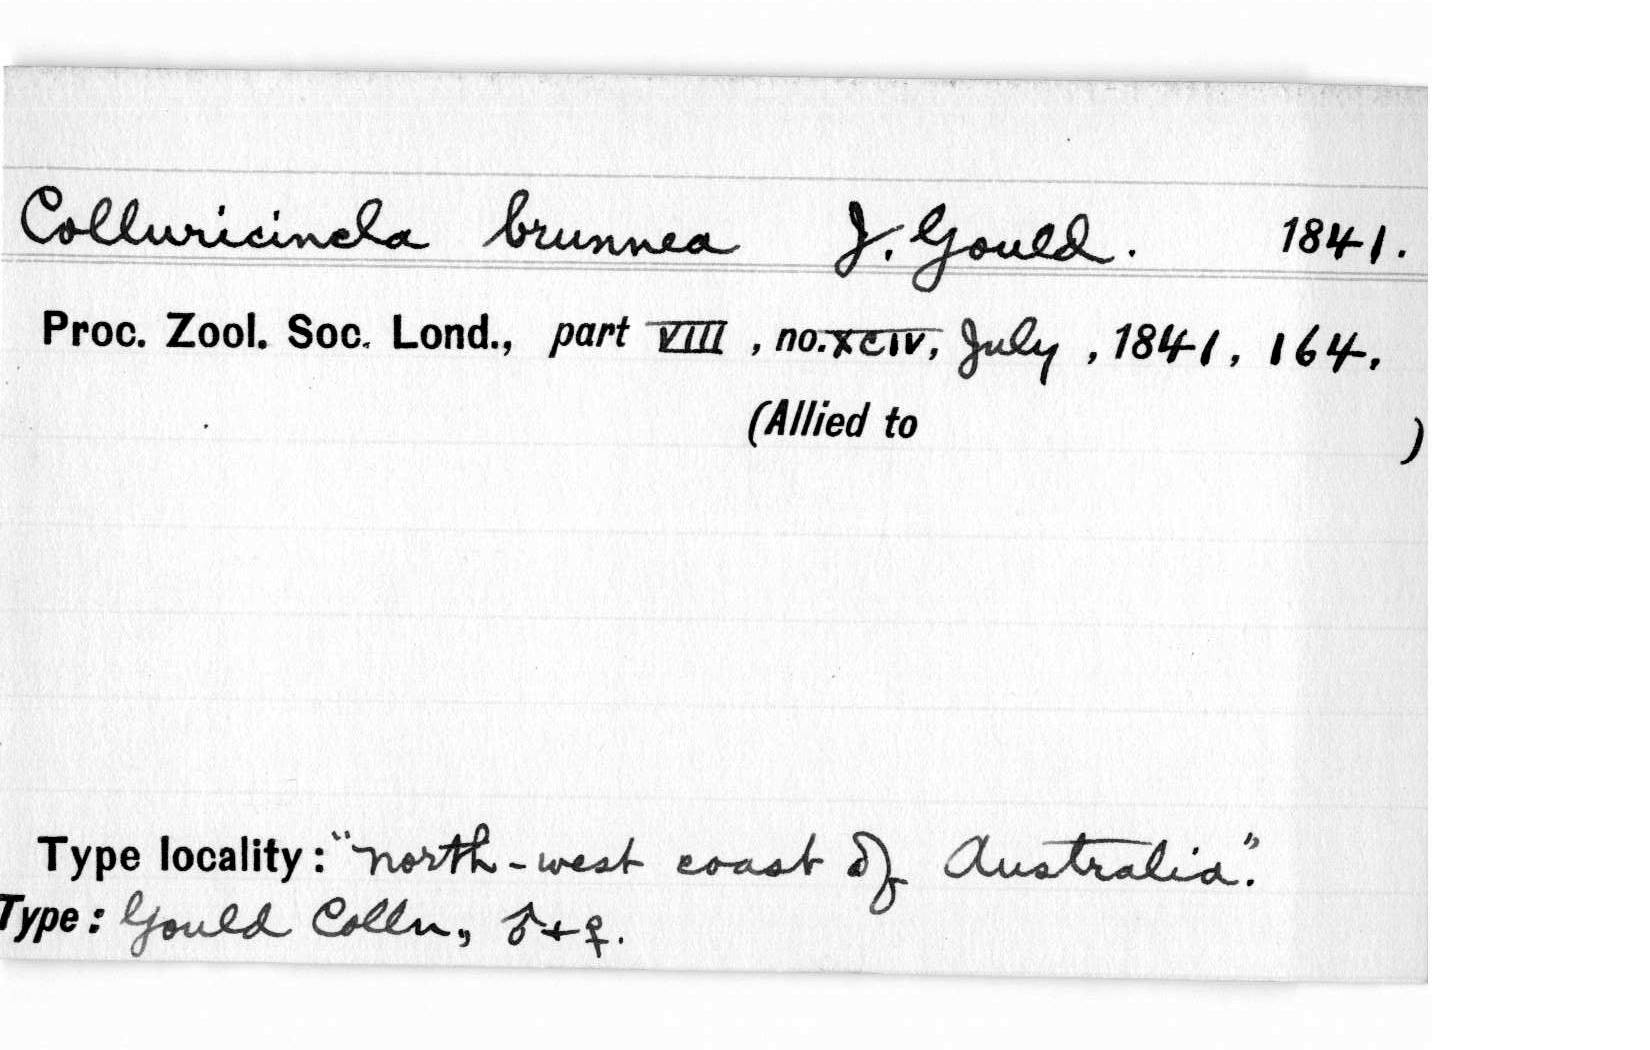 Colluricincla brunnea J. Gould. 1841.
Proc. Zool. Soc. Lond., part VIII, no. XCIV, July, 1841, 164.
(Allied to )
Type locality: "north-west coast of Australia".
Type: Gould Colln., ♂+♀.